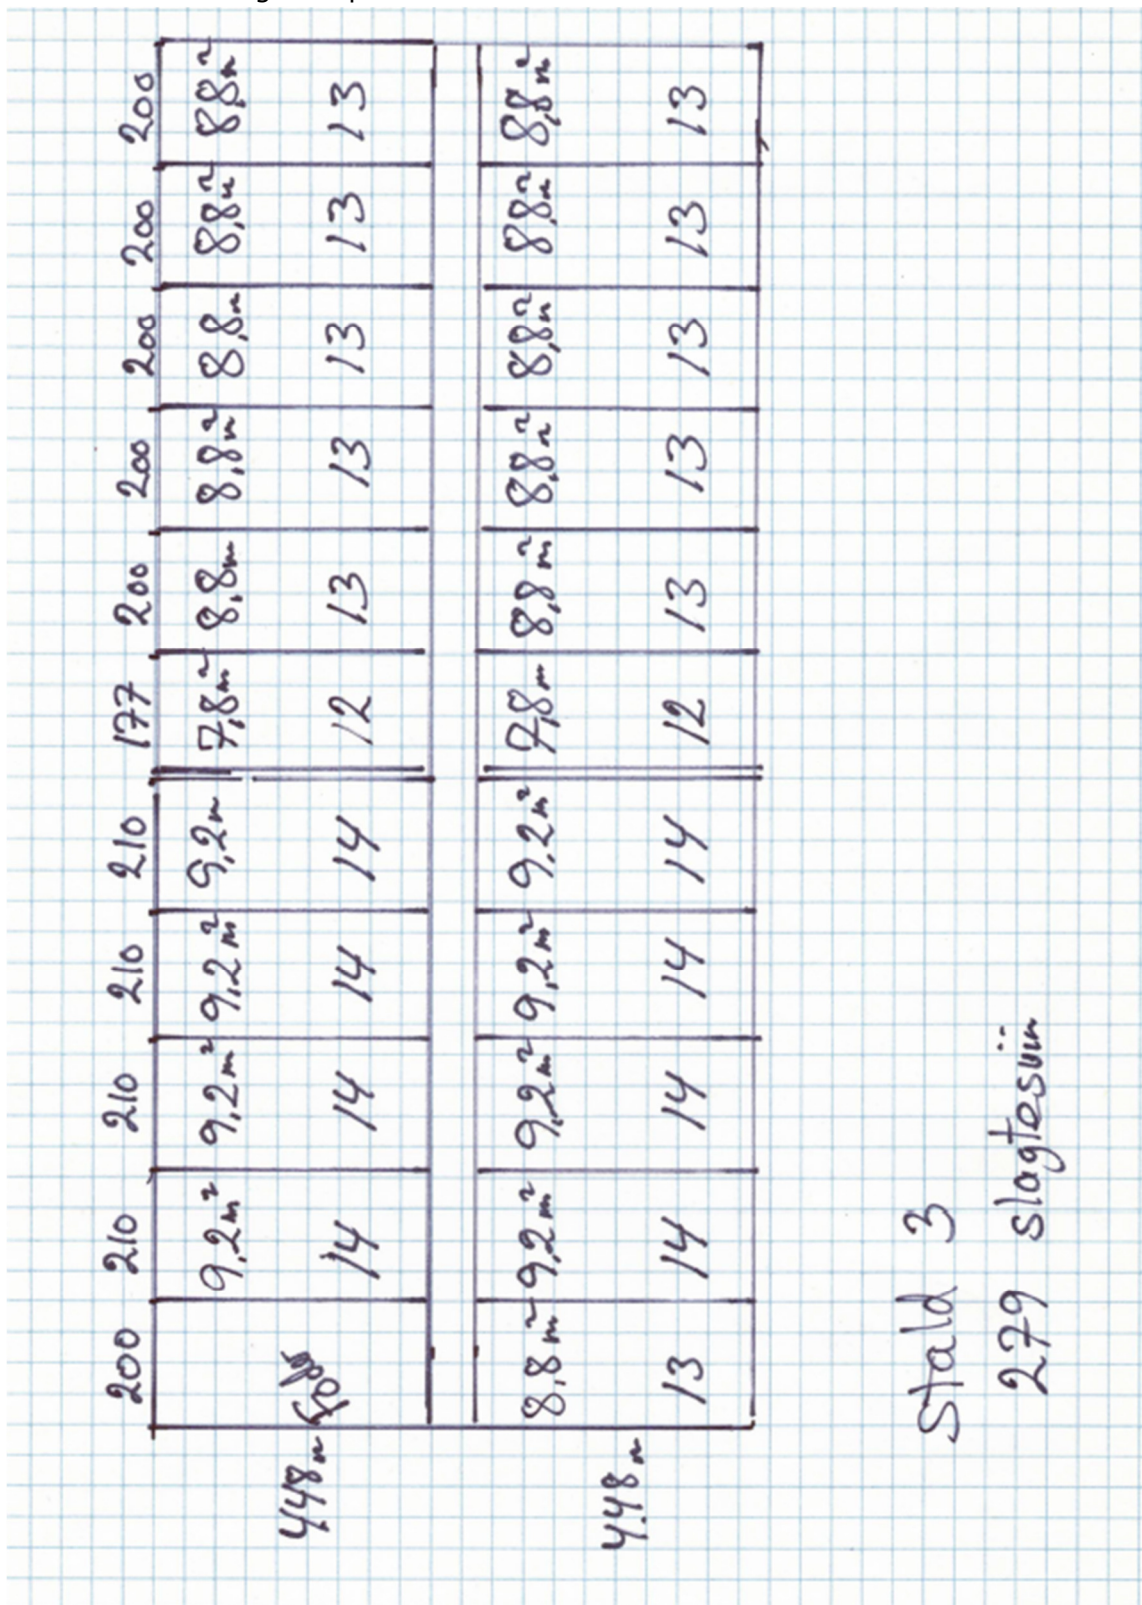 200 210 210 210 210 177 200 200 200 200 200
9,2m² 9,2m² 9,2m² 9,2m 7,8m² 8,8m 8,8m² 8,8m 8,8m² 8,8m²
4,48m Foder 14 14 14 14 12 13 13 13 13 13
8,8m² 9,2m² 9,2m² 9,2m² 9,2m² 7,8m 8,8m² 8,8m² 8,8m² 8,8m² 8,8m²
4,48m 13 14 14 14 14 12 13 13 13 13 13
Stald 3
279 slagtesvin